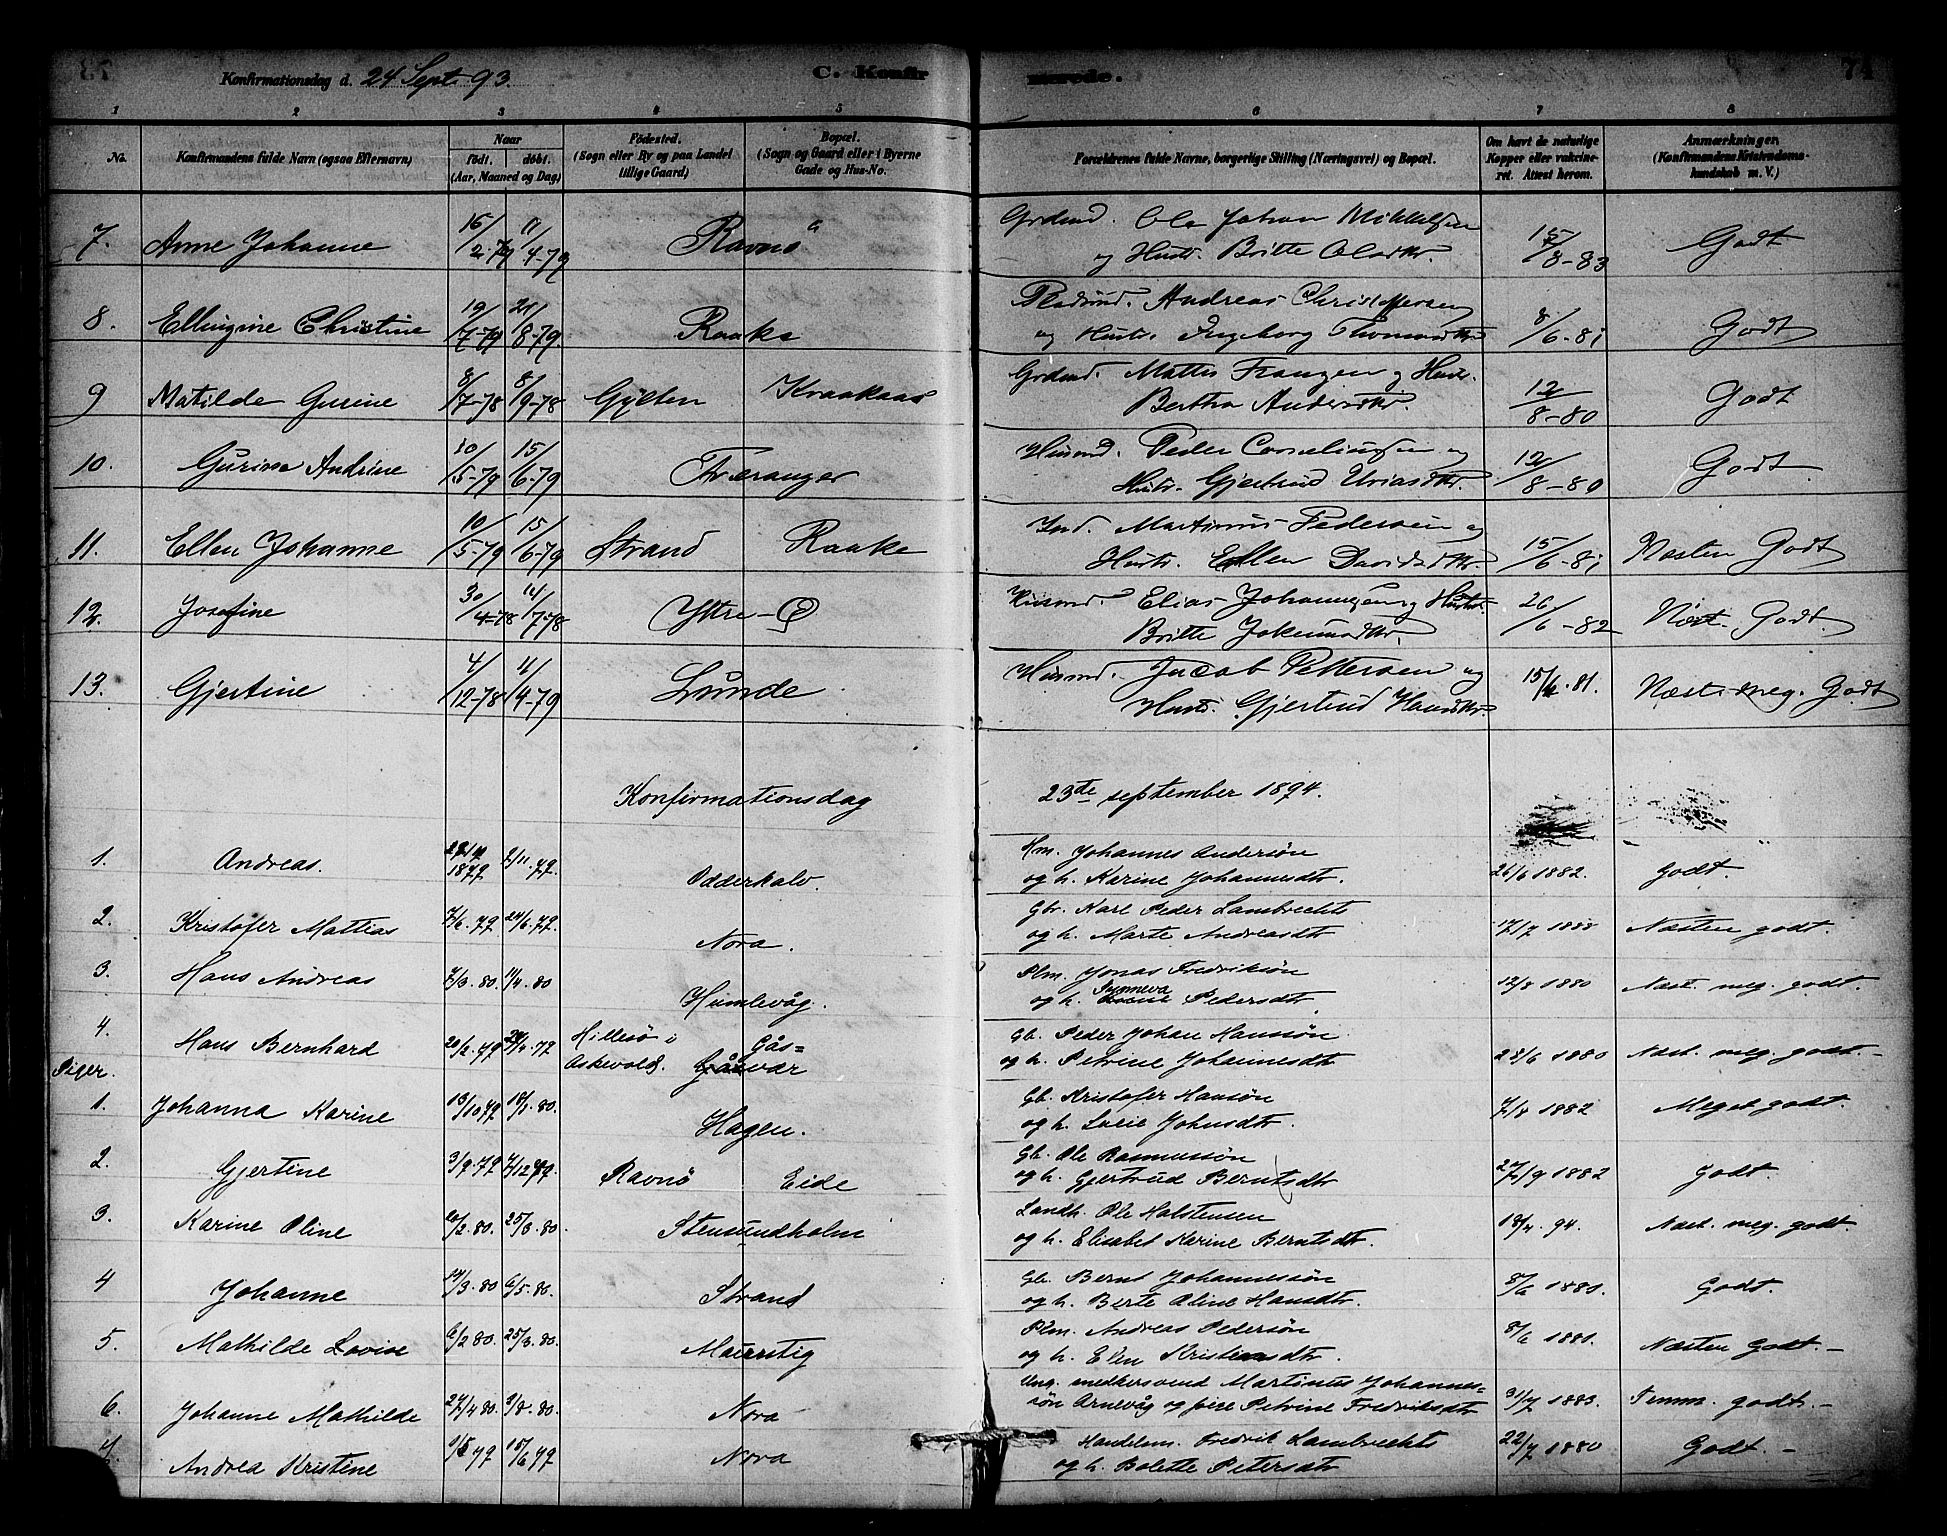 Konfirmationsdag d. 24 Sept. 93. C. Konfir merede. 74
1 2 3 4 5 6 7 8
No. Konfirmandens fulde Navn (ogsaa Efternavn) Naar födt. döbt. (Aar, Maaned og Dag) Födested. (Sogn eller By og paa Landet tillige Gaard) Bopæl. (Sogn og Gaard eller i Byerne Gade og Hus-No. Forældrenes fulde Navne, borgerlige Stilling (Næringsvei) og Bopæl. Om havt de naturlige Kopper eller vakcineret. Attest herom. Anmærkninger. (Konfirmandens Kristendomskundskab m. V.)
7. Anne Johanne 16/2-79 11/4-79 Ravnö Grdmd. Ole Johan Mikkelsen
og Hustr. Britte Olsdtr. 15/8-83 Godt
8. Ellingine Christine 19/7-79 24/8-79 Raake Pladsmd. Andreas Christophersen
og Hustr. Ingeborg Thomasdtr. 8/6-81 Godt
9 Matilde Gurine 8/7-78 8/9-78 Gylten Kraakaas Grdmd. Mattis Franzen og Hustr.
Bertha Andersdtr. 12/8-80 Godt
10. Gurine Andrine 30/5-79 15/6-79 Træranger Husmd. Peder Corneliussen og
Hustr. Gjertrud Uriasdtr. 12/8-80 Godt
11. Ellen Johanne 10/5-79 15/6-79 Strand Raake Ind. Martinus Pedersen og
Hustr. Ellen Davidsdtr. 15/6-81 Næsten Godt
12. Josefine 30/4-78 14/7-78 Yttre-Ø Husmd. Elias Johannesen og Hustr.
Britte Jokumsdtr. 26/6-82 Næst. Godt.
13. Gjertine 4/12-78 11/4-79 Lunde Husmd. Jacob Pettersen og
Hustr. Gjertrud Hansdtr. 15/6.81. Næst. meg. Godt
Konfirmationsdag 23de september 1894.
1. Andreas. 1879 2/11.79. Odderkalv. Hm. Johannes Andersön
og h. Karine Johannesdtr. 26/6 1882. Godt.
2. Kristofer Mattias 7/6.79 24/6.79. Nora. Gbr. Karl Peder Lambrechts
og h. Marte Andreasdtr 17/7 1888 Næsten godt.
3. Hans Andreas 7/3.80. 11/4.80 Humlevåg. Plm. Jonas Fredriksön
og h. Synneva Pedersdtr 12/8 1880 Næst. meg. godt.
4. Hans Bernhard 20/2.79 20/4.79 Hillesö i Askevold. Gås=
vær Gb. Peder Johan Hansön
og h. Petrine Johannesdtr 23/6 1880 Næst. meg. godt.-
Piger.
1. Johanna Karine 13/10 79 18/1.80. Hagen. Gb. Kristofer Hansön
og h. Lovie Johnsdtr. 7/8 1882 Meget godt.
2. Gjertine 3/9.79 7/12 79. Ravnö Eide Gb. Ole Rasmussön
og h. Gjertrud Berntsdtr 27/9 1882 Godt.
3. Karine Oline 20/2.80. 25/3.80. Stensundholm Landh. Ole Halstensen
og h. Elisabet Karine Berntsdtr. 18/4.94. Næst. meg. godt
4 Johanne 14/3.80 6/5.80. Strand Gb. Bernt Johannessön
og h. Berte Oline Hansdtr. 8/6 1880. Godt.
5. Mathilde Lovise 6/2 80. 25/3.80. Maurstig Plm. Andreas Pedersön
og h. Elen Kristensdtr. 8/6 1881. Næsten Godt.-
6. Johanne Mathilde 27/4 80. 3/8.80. Nora Ung. medkersvend Martinus Johannes=
sön Arnevåg og pige Petrine Fredriksdtr 31/7 1883. Temm. godt.-
7. Andrea Kristine 1/5 79 15/6 79 Nora Handelsm. Fredrik Lambrechts
og h. Bolette Petersdtr 22/7 1880 Godt.-